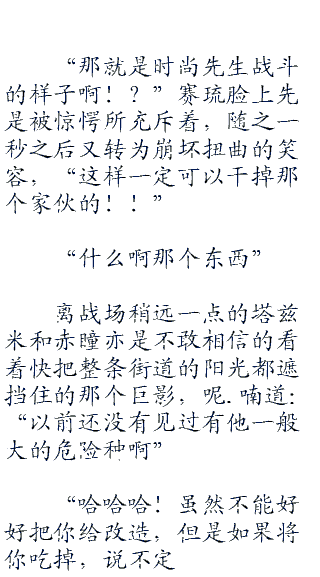 “那就是时尚先生战斗
的样子啊！？”赛琉脸上先
是被惊愕所充斥着，随之一
秒之后又转为崩坏扭曲的笑
容，“这样一定可以干掉那
个家伙的！！”
“什么啊那个东西”
离战场稍远一点的塔兹
米和赤瞳亦是不敢相信的看
着快把整条街道的阳光都遮
挡住的那个巨影，呢.喃道：
“以前还没有见过有他一般
大的危险种啊”
“哈哈哈！虽然不能好
好把你给改造，但是如果将
你吃掉，说不定